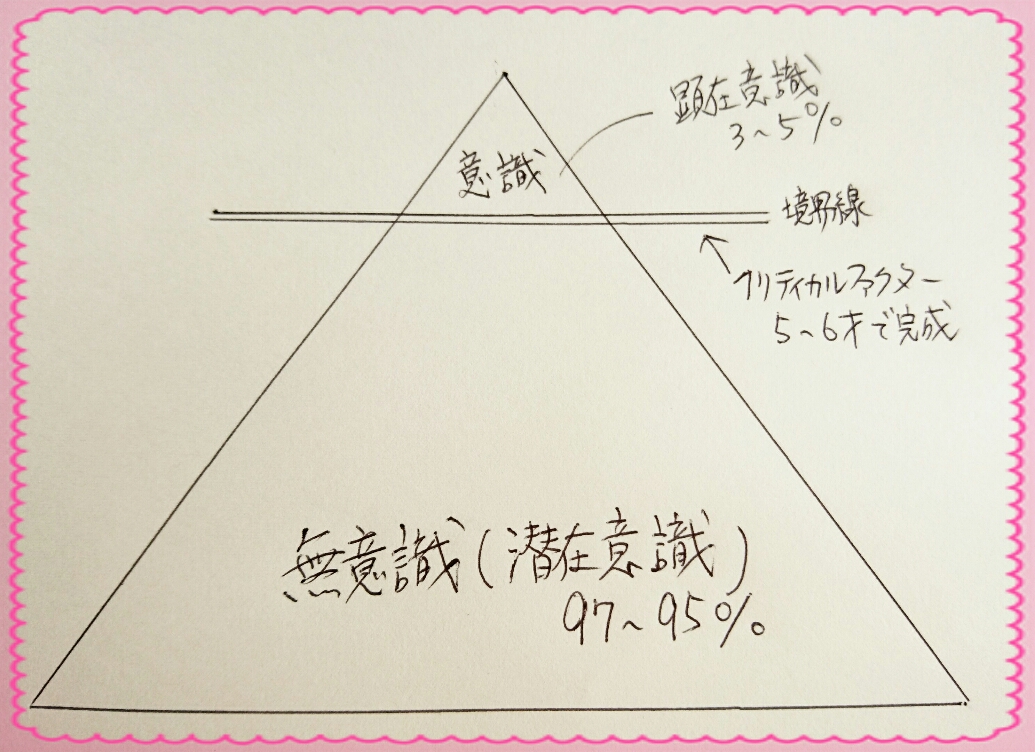 顕在意識
3~5%
意識
境界線
クリティカルファクター
5~6才で完成
無意識(潜在意識)
97~95%